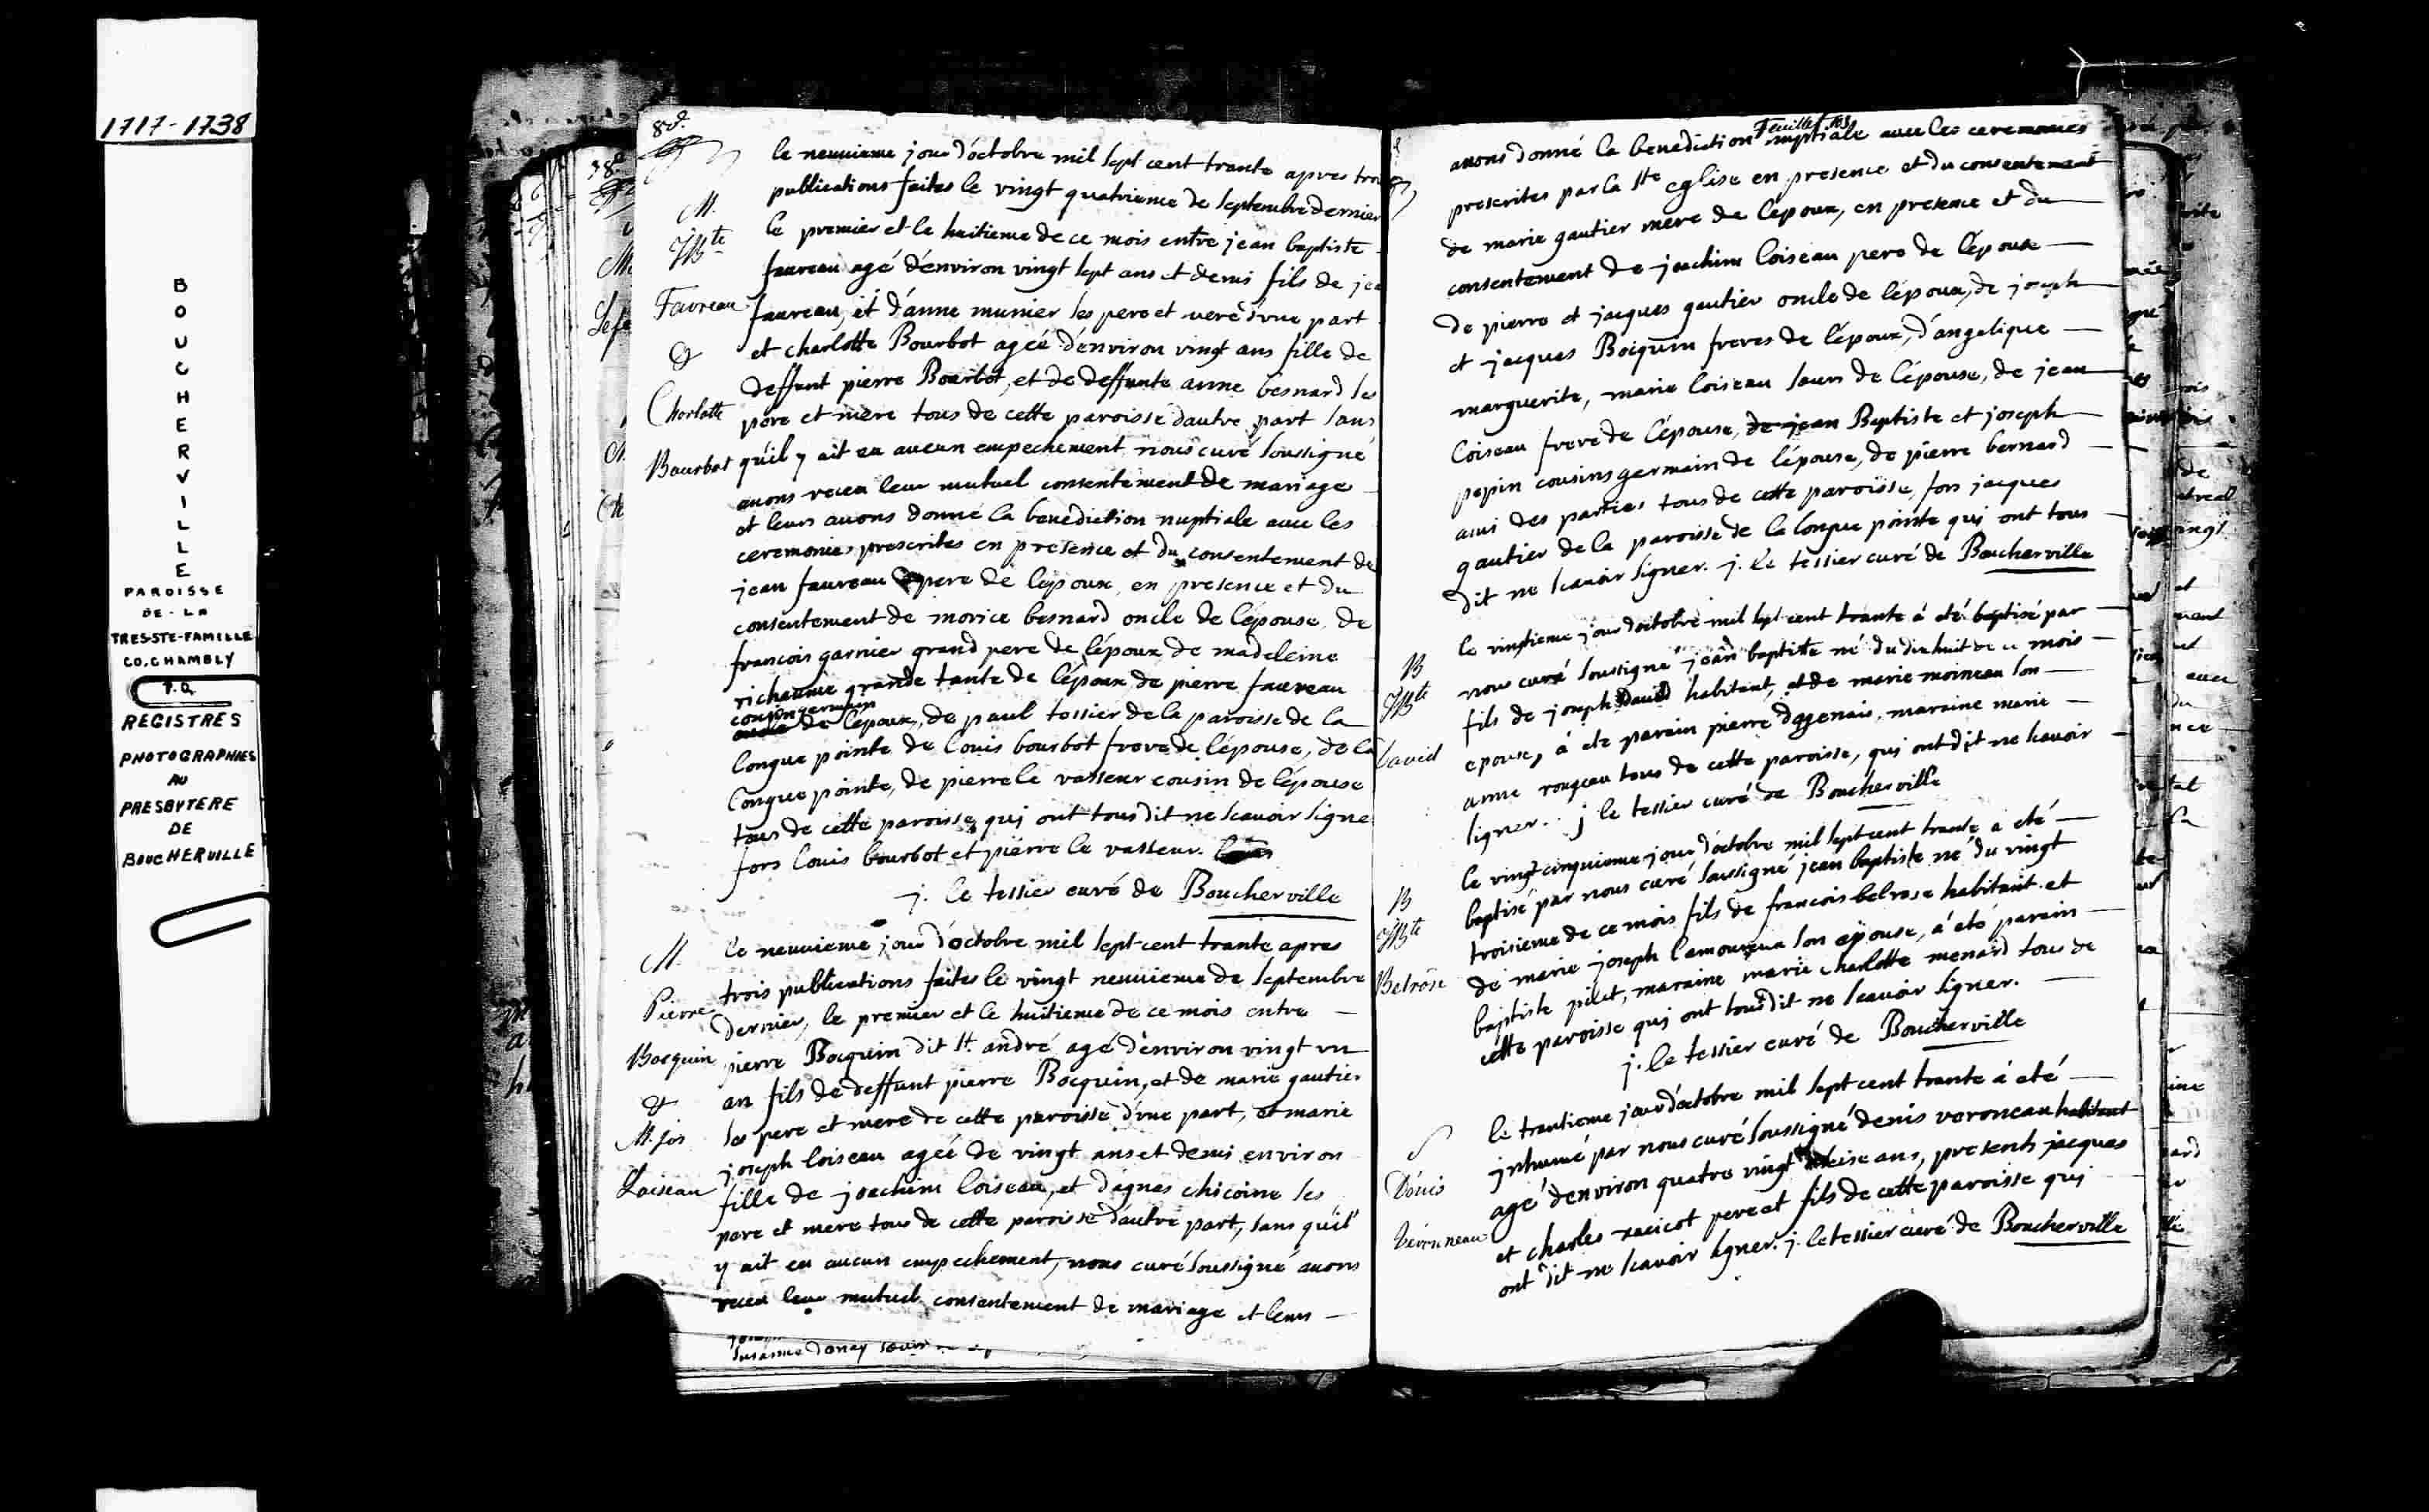 1717-1738
BOUCHERVILLE
PAROISSE
DE-LA
TRES-STE-FAMILLE
CO.CHAMBLY
P.Q.
REGISTRES
PHOTOGRAPHIES
AU
PRESBYTERE
DE
BOUCHERVILLE
le neuvieme jour d'octobre mil sept cent trante apres
publications faites le vingt quatrieme de septembre dernier
M.
le premier et le huitieme de ce mois entre jean baptiste
JBte
faureau agé d'environ vingt sept ans et demi fils de
Favreau
faureau, et d'anne munier ses pere et mere d'vne part
&
et charlotte Bourbot agéé d'environ vingt ans fille de
deffunt pierre Bourbot, et de deffunte anne besnard ses
Charlotte
pere et mere tous de cette paroisse d'autre part sans
Bourbot
qu'il y ait eu aucun empechement nous curé soussigné
auons receu leur mutuel consentement de mariage
et leurs auons donné la benediction nuptiale auec les
ceremonies prescrites en presence et du consentement de
jean faureau pere de l'epoux, en presence et du
consentement de morice besnard oncle de l'épouse, de
francois garnier grand pere de l'époux de madeleine
richaume grande tante de l'époux de pierre faureau
cousin germain
de l'epoux, de paul tessier de la paroisse de la
longue pointe de louis bourbot frere de l'épouse, de la
longue pointe, de pierre le vasseur cousin de l'épouse
tous de cette paroisse, qui ont tous dit ne scauoir signe
fors louis bourbot et pierre le vasseur.
j. le tessier curé de Boucherville
M.
le neuuieme jour d'octobre mil sept cent trante apres
trois publications faites le vingt neuuieme de septembre
Pierre
dernier, le premier et le huitieme de ce mois entre
Bocquin
pierre Bocquin dit st. andré agé d'environ vingt vn
&
an fils de deffunt pierre Bocquin, et de marie gautier
M. jos
ses pere et mere de cette paroisse d'vne part, et marie
joseph loiseau agéé de vingt ans et demi environ
Loiseau
fille de joachim loiseau, et d'agnes chicoine ses
pere et mere tous de cette paroisse d'autre part, sans qu'il
y ait eu aucun empechement, nous curé soussigné auons
receu leur mutuel consentement de mariage et leurs
Feuillet 103
auons donné la benediction nuptiale auec les ceremonies
prescrites par la ste eglise en presence et du consentement
de marie gautier mere de l'epoux, en presence et du
consentement de joachim loiseau pere de l'épouse
de pierre et jacques gautier oncle de l'époux, de joseph
et jacques Boiquin freres de l'époux, d'angelique
marguerite, marie loiseau seurs de l'épouse, de jean
loiseau frere de l'épouse, de jean Baptiste et joseph
pepin cousins germain de l'épouse, de pierre bernard
ami des parties tous de cette paroisse, fors jacques
gautier de la paroisse de la longue pointe qui ont tous
dit ne scauoir signer. j. le tessier curé de Boucherville
le vingtieme jour d'octobre mil sept cent trante á eté baptisé par
B
nous curé soussigné jean baptiste né du dix huit de ce mois
JBte
fils de joseph David habitant, et de marie moineau son
David
epouse, á eté parain pierre dagenais, maraine marie
anne rougeau tous de cette paroisse, qui ont dit ne scauoir
signer. j le tessier curé de Boucherville
le vingt cinquieme jour d'octobre mil sept cent trante a eté
B
baptisé par nous curé soussigné jean baptiste né du vingt
JBte
troisieme de ce mois fils de francois belrose habitant et
Belrose
de marie joseph lamoureux son epouse, á eté parain
baptiste pilet, maraine marie charlotte menard tous de
cette paroisse qui ont tous dit ne scauoir signer.
j. le tessier curé de Boucherville
le trantieme jour d'octobre mil sept cent trante á eté
S
jnhumé par nous curé soussigné denis veroneau habitant
Dénis
agé d'environ quatre vingt ans, presents jacques
Véronneau
et charles racicot pere et fils de cette paroisse qui
ont dit ne scauoir signer. j. le tessier curé de Boucherville